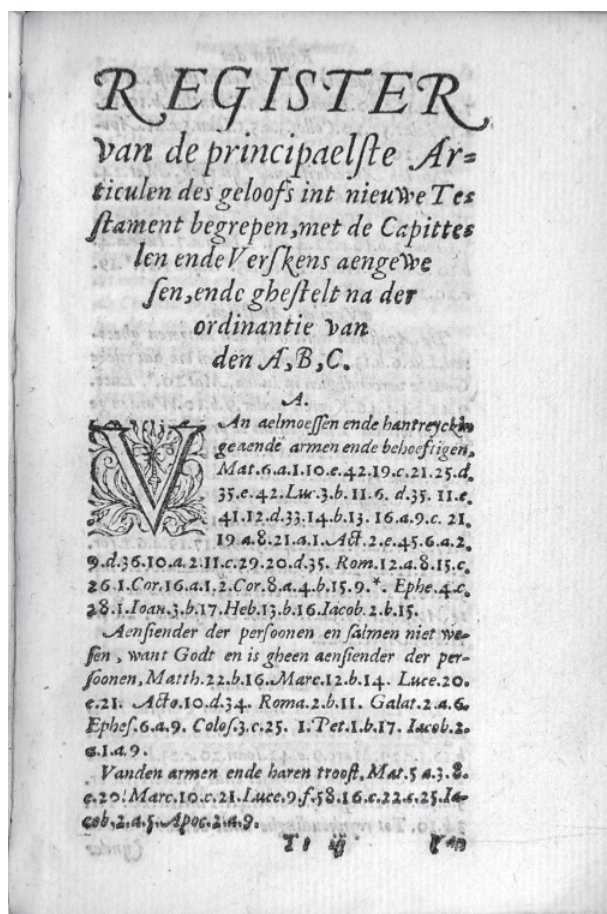 REGISTER
van de principaelſte Ar=
ticulen des geloofs int nieuwe Te=
ſtament begrepen, met de Capitte=
len ende Verſkens aengewe
ſen, ende gheſtelt na der
ordinantie van
den A, B, C.
A.
VAn aelmoeſſen ende hantreyckin
geaende armen ende behoeftigen,
Mat.6.a.1.10.e.42.19.c.21.25.d.
35.e.42. Luc.3.b.11.6. d.35. 11.e.
41.12.d.33.14.b.13. 16.a.9.c. 21.
19 a.8.21.a.1. Act. 2.e.45.6.a.2.
9.d.36.10.a.2.11.c.29.20.d.35. Rom.12.a.8.15.c.
26.1.Cor.16.a.1.2.Cor.8.a.4.b.15.9.*. Ephe.4.c.
28.1.Ioan.3.b.17.Heb.13.b.16.Iacob.2.b.15.
Aenſiender der perſoonen en ſalmen niet we=
ſen, want Godt en is gheen aenſiender der per-
ſoonen, Matth.22.b.16.Marc.12.b.14. Luce.20.
c.21. Acto.10.d.34. Roma.2.b.11. Galat.2.a.6.
Epheſ.6.a.9. Coloſ.3.c.25. 1.Pet.1.b.17. Iacob.2.
a.1.a 9.
Vanden armen ende haren trooſt, Mat.5 a.3.8.
c.20. Marc.10.c.21.Luce.9.f.58.16.c.22.c.25.Ia=
cob.2.a.5.Apoc.2.a.9.